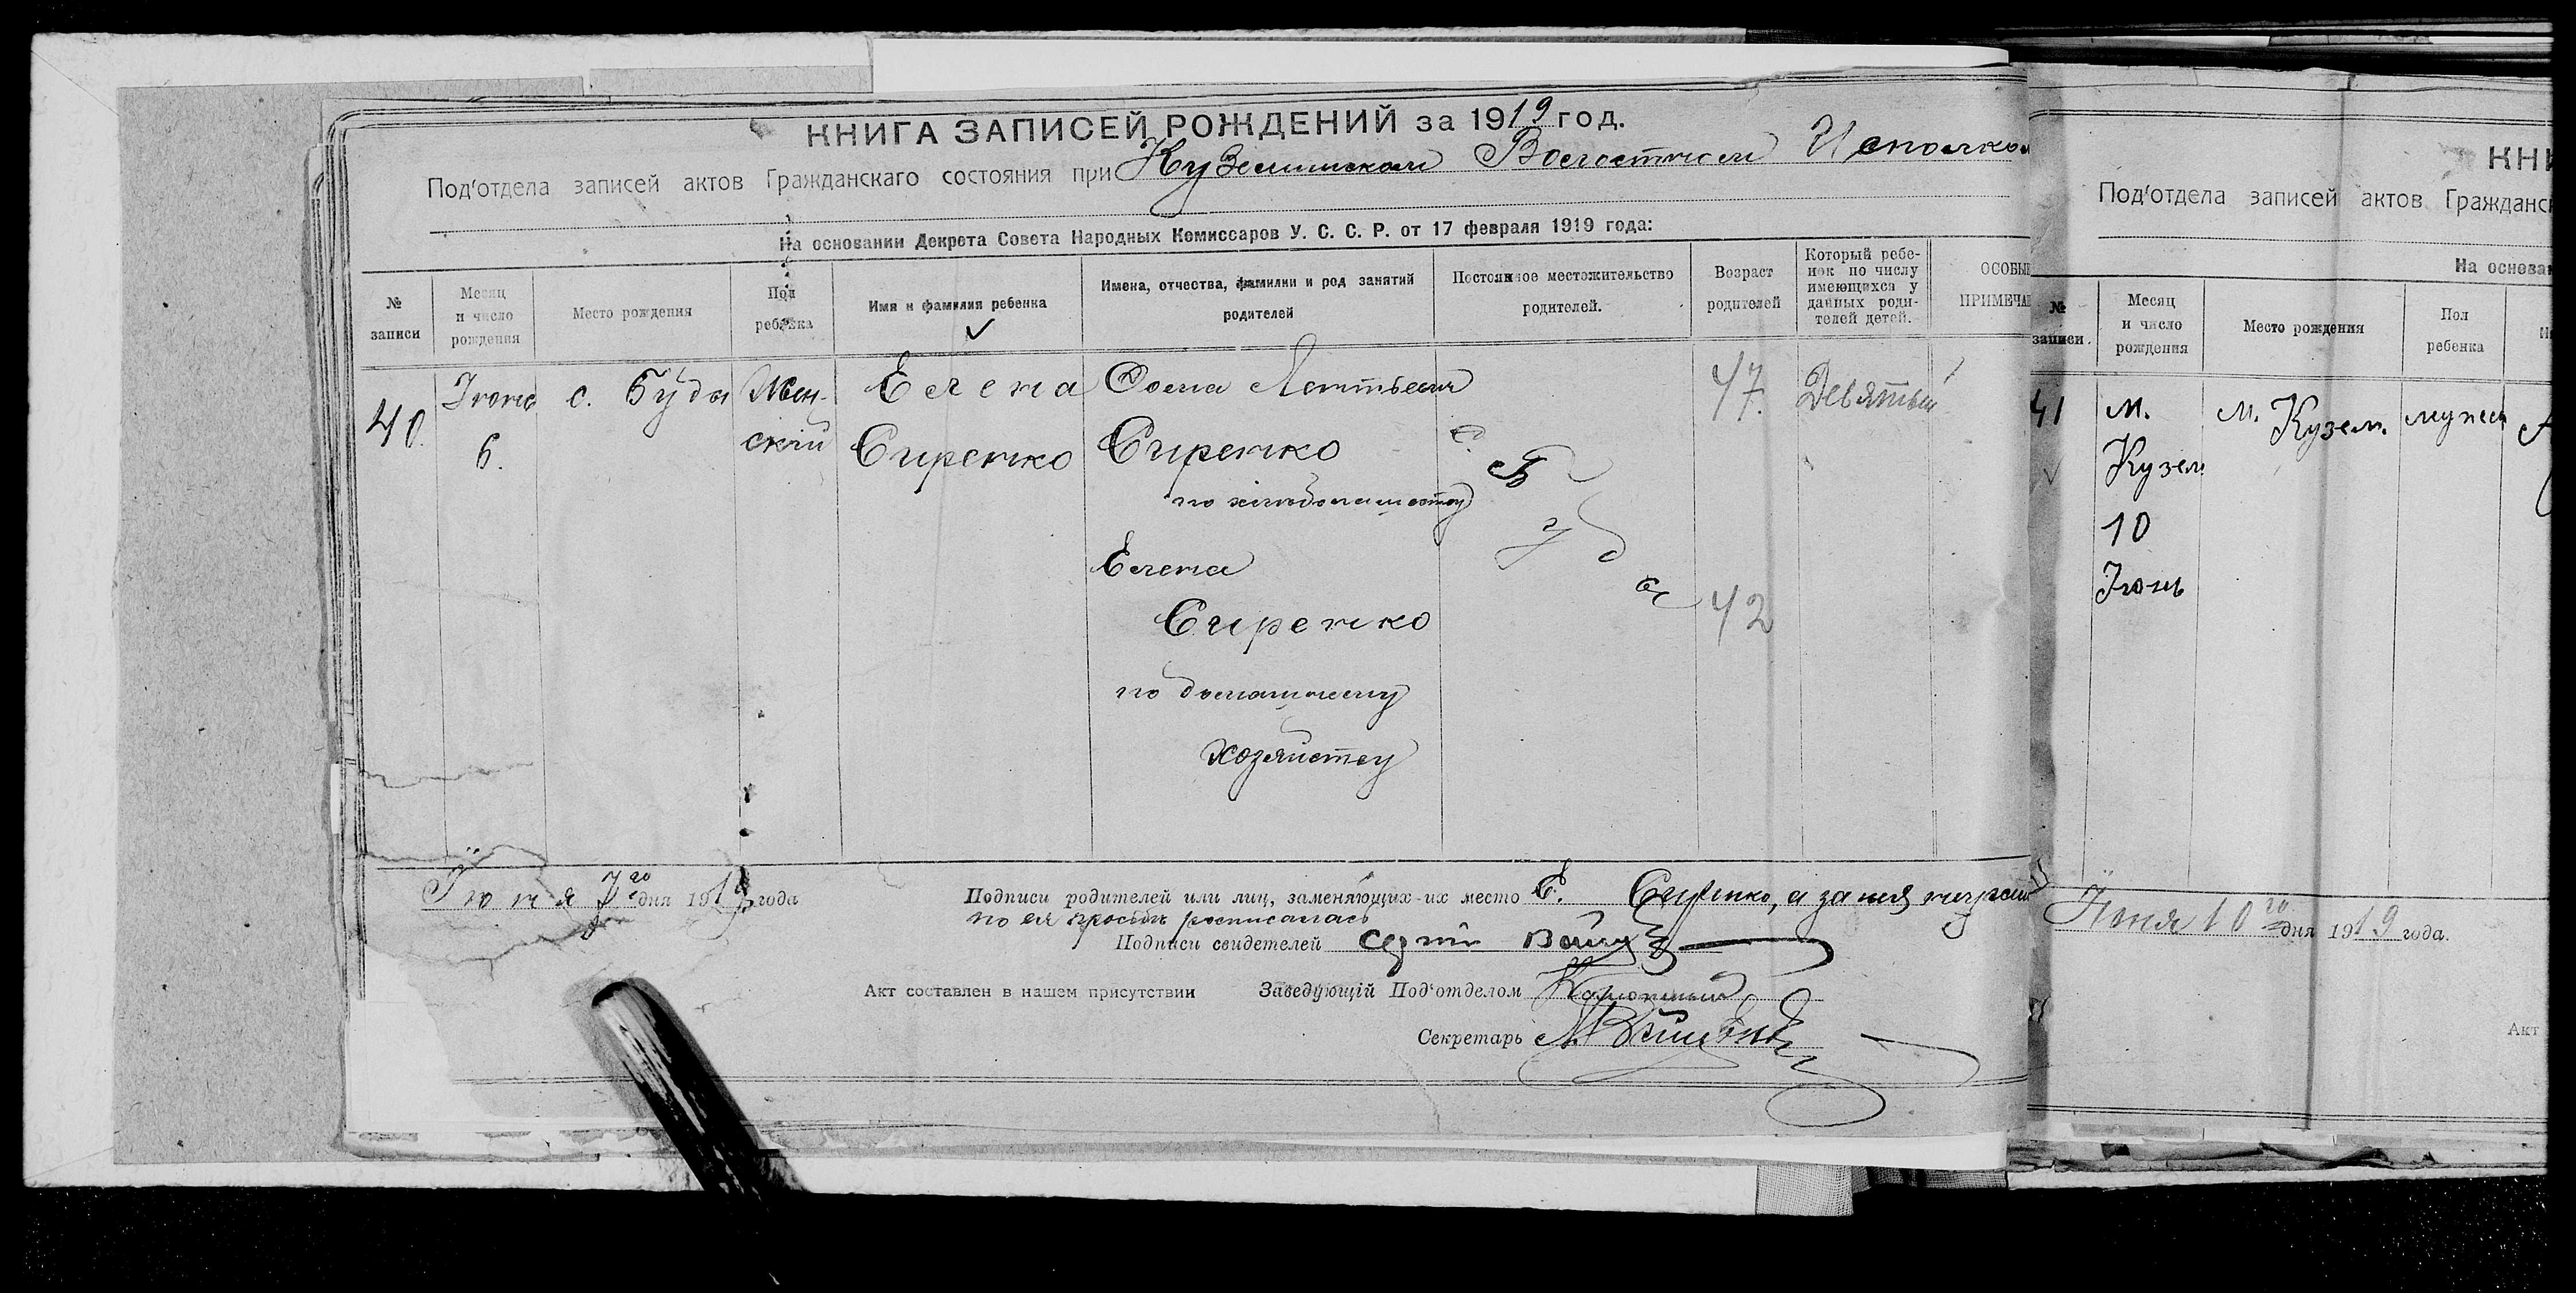 КНИГА ЗАПИСЕЙ РОЖДЕНИЙ за 1919 год.
Под‘отдела записей актов Гражданскаго состояния при Куземинском Волостном Исполком
На основании Декрета Совета Народных Комиссаров У. С. С. Р. от 17 февраля 1919 года:
№ записи
Месяц и число рождения
Место рождения
Пол ребенка
Имя и фамилия ребенка
Имена, отчества, фамилии и род занятий родителей
Постоянное местожительство родителей.
Возраст родителей
Который ребенок по числу имеющихся у данных родителей детей.
ОСОБЫ
ПРИМЕЧА
40.
Июнь
6.
с. Буды
Жен-
ский
Елена
Сиренко
Фома Леонтьевич
Сиренко
по
Елена
Сиренко
по домашнему
хозяйству
с. Буды
47.
42
Девятый
Июня 7го дня 1919 года
Подписи родителей или лиц, заменяющих их место Е. Сиренко, а за нея неграм
по ея просьбе росписалась
Подписи свидетелей
Акт составлен в нашем присутствии
Заведующій Под‘отделом
Секретарь
КНИ
Под‘отдела записей актов Гражданск
На основан
№ записи.
Месяц и число рождения
Место рождения
Пол ребенка
41
м.
Кузем.
10
Июнь
м. Кузем.
мужск
Июня 10го дня 1919 года.
Акт